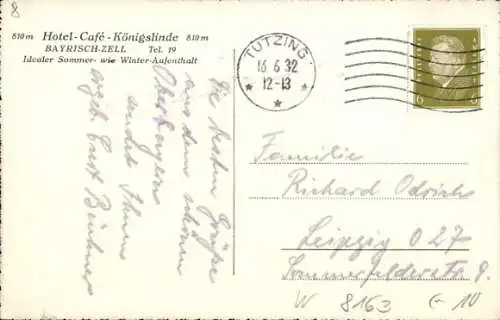 8
810 m Hotel-Café-Königslinde 810 m
BAYRISCH-ZELL Tel. 19
Idealer Sommer- wie Winter-Aufenthalt
TUTZING
16 6 32
12-13
6 6
Die besten Grüße
aus dem schönen
Oberbayern
sendet Ihnen
ergeb. Curt
Familie
Richard
Leipzig O 27
Sommerfelderstr. 9.
W 8163 G-10